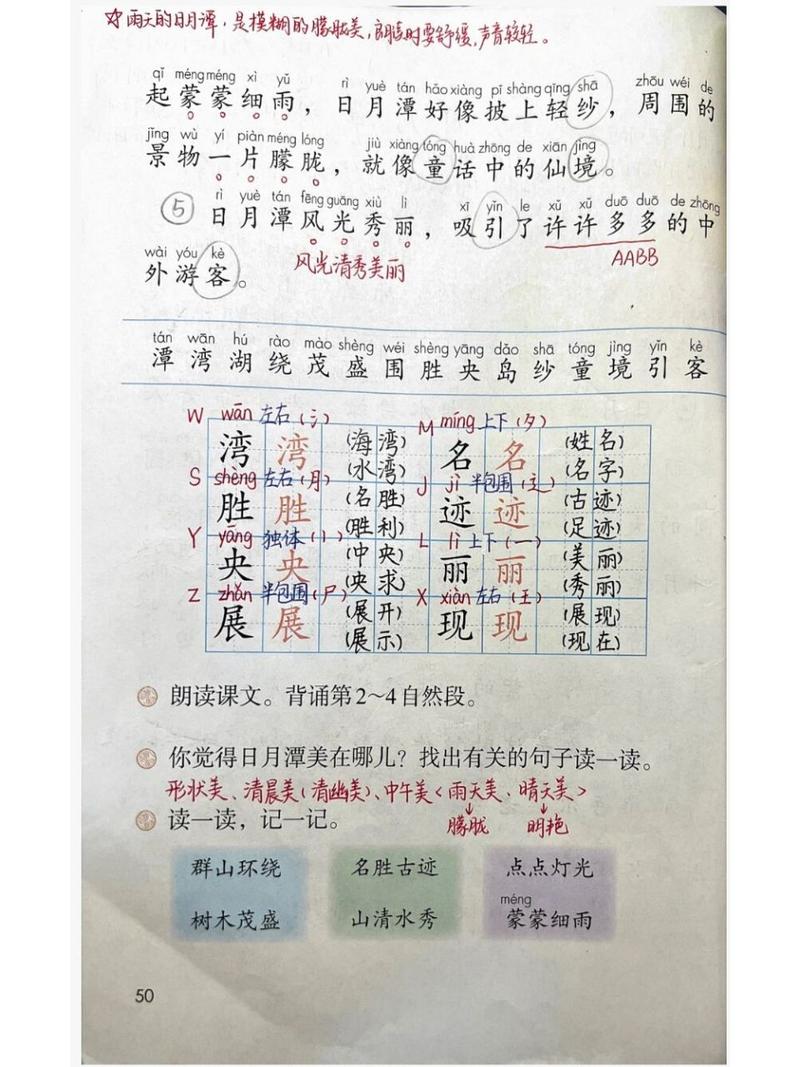 ☆雨天的日月潭，是模糊的朦胧美，朗读时要舒缓，声音较轻。
qǐ méng méng xì yǔ rì yuè tán hǎo xiàng pī shàng qīng shā zhōu wéi de
起蒙蒙细雨，日月潭好像披上轻纱，周围的
jǐng wù yí piàn méng lóng jiù xiàng tóng huà zhōng de xiān jìng
景物一片朦胧，就像童话中的仙境。
rì yuè tán fēng guāng xiù lì xī yǐn le xǔ xǔ duō duō de zhōng
⑤日月潭风光秀丽，吸引了许许多多的中
wài yóu kè
外游客。
风光清秀美丽
AABB
tán wān hú rào mào shèng wéi shèng yāng dǎo shā tóng jìng yǐn kè
潭 湾 湖 绕 茂 盛 围 胜 央 岛 纱 童 境 引 客
W wān 左右（氵） M míng 上下（夕）
湾 湾 （海湾） 名 名 （姓名）
（水湾） （名字）
S shèng 左右（月） J jì 半包围（辶）
胜 胜 （名胜） 迹 迹 （古迹）
（胜利） （足迹）
Y yāng 独体（丨） L lì 上下（一）
央 央 （中央） 丽 丽 （美丽）
（央求） （秀丽）
Z zhǎn 半包围（尸） X xiàn 左右（王）
展 展 （展开） 现 现 （展现）
（展示） （现在）
朗读课文。背诵第2～4自然段。
你觉得日月潭美在哪儿？找出有关的句子读一读。
形状美、清晨美（清幽美）、中午美＜雨天美、晴天美＞
朦胧 明艳
读一读，记一记。
群山环绕 名胜古迹 点点灯光
méng
树木茂盛 山清水秀 蒙蒙细雨
50